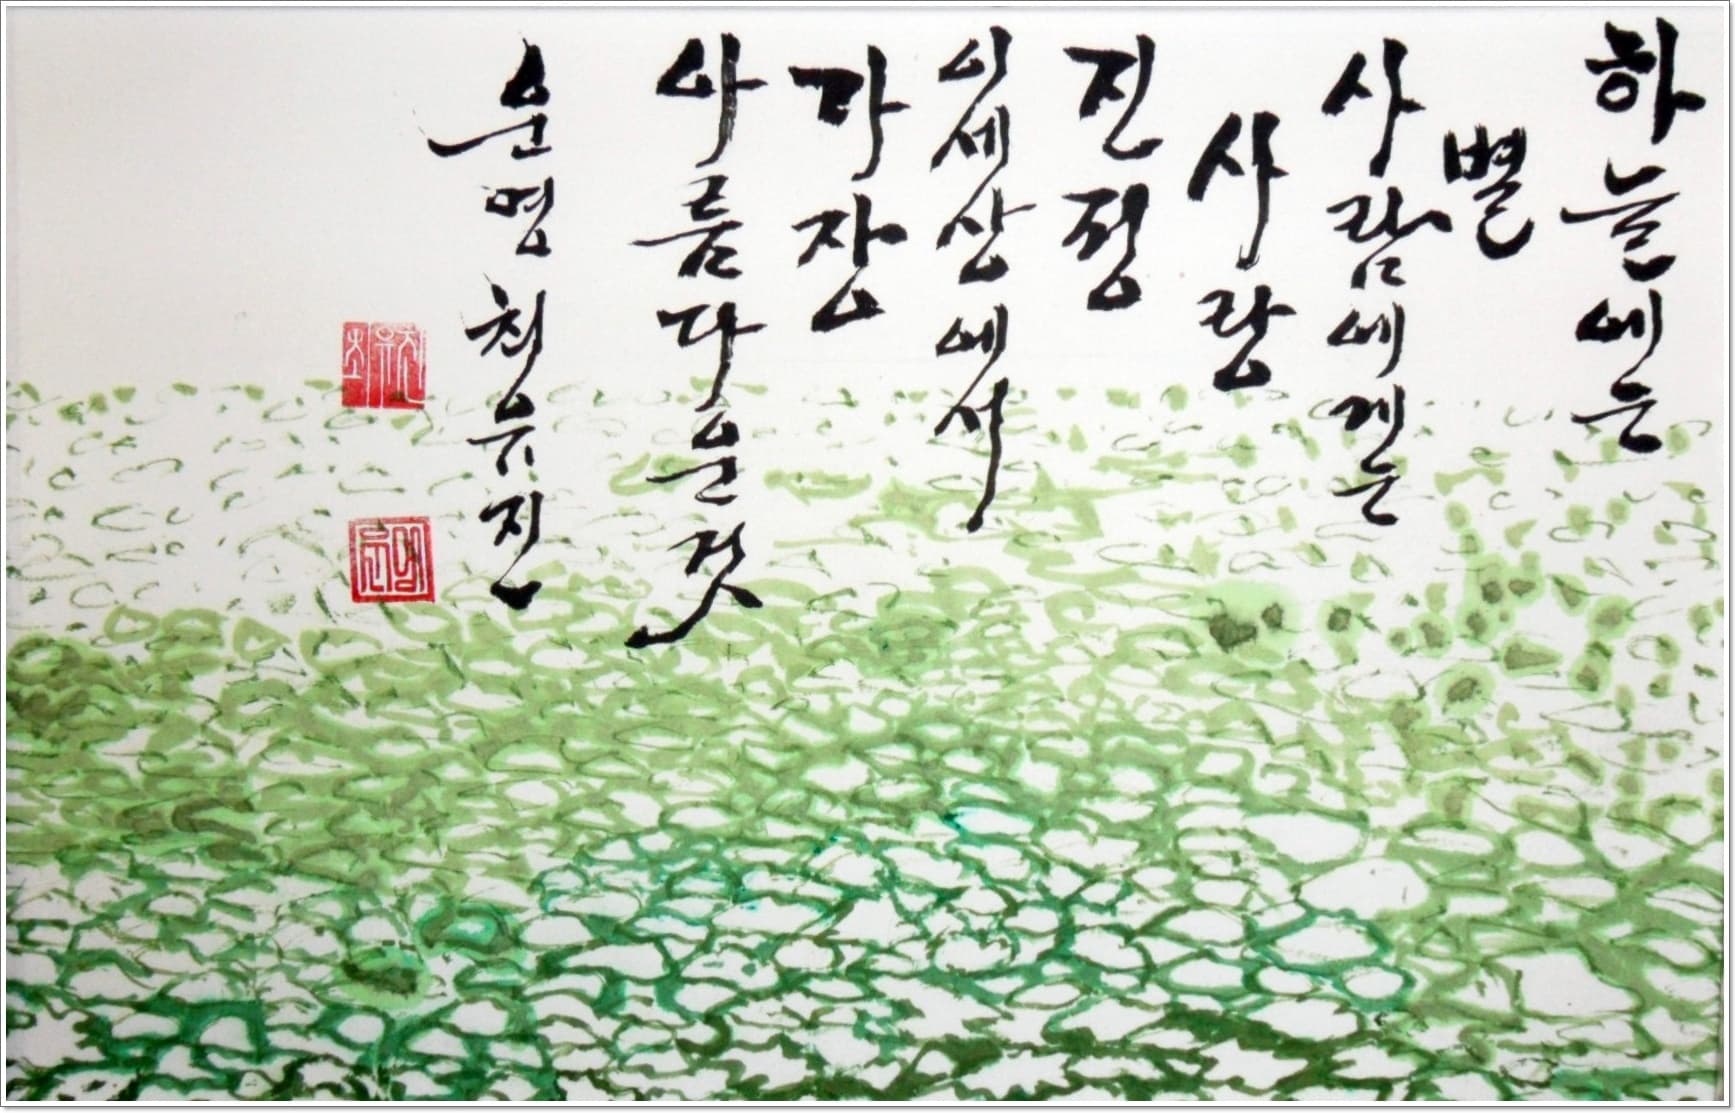 하늘에는
별
사람에게는
사랑
진정
이세상에서
가장
아름다운것
운영 최유진
최유진
운영